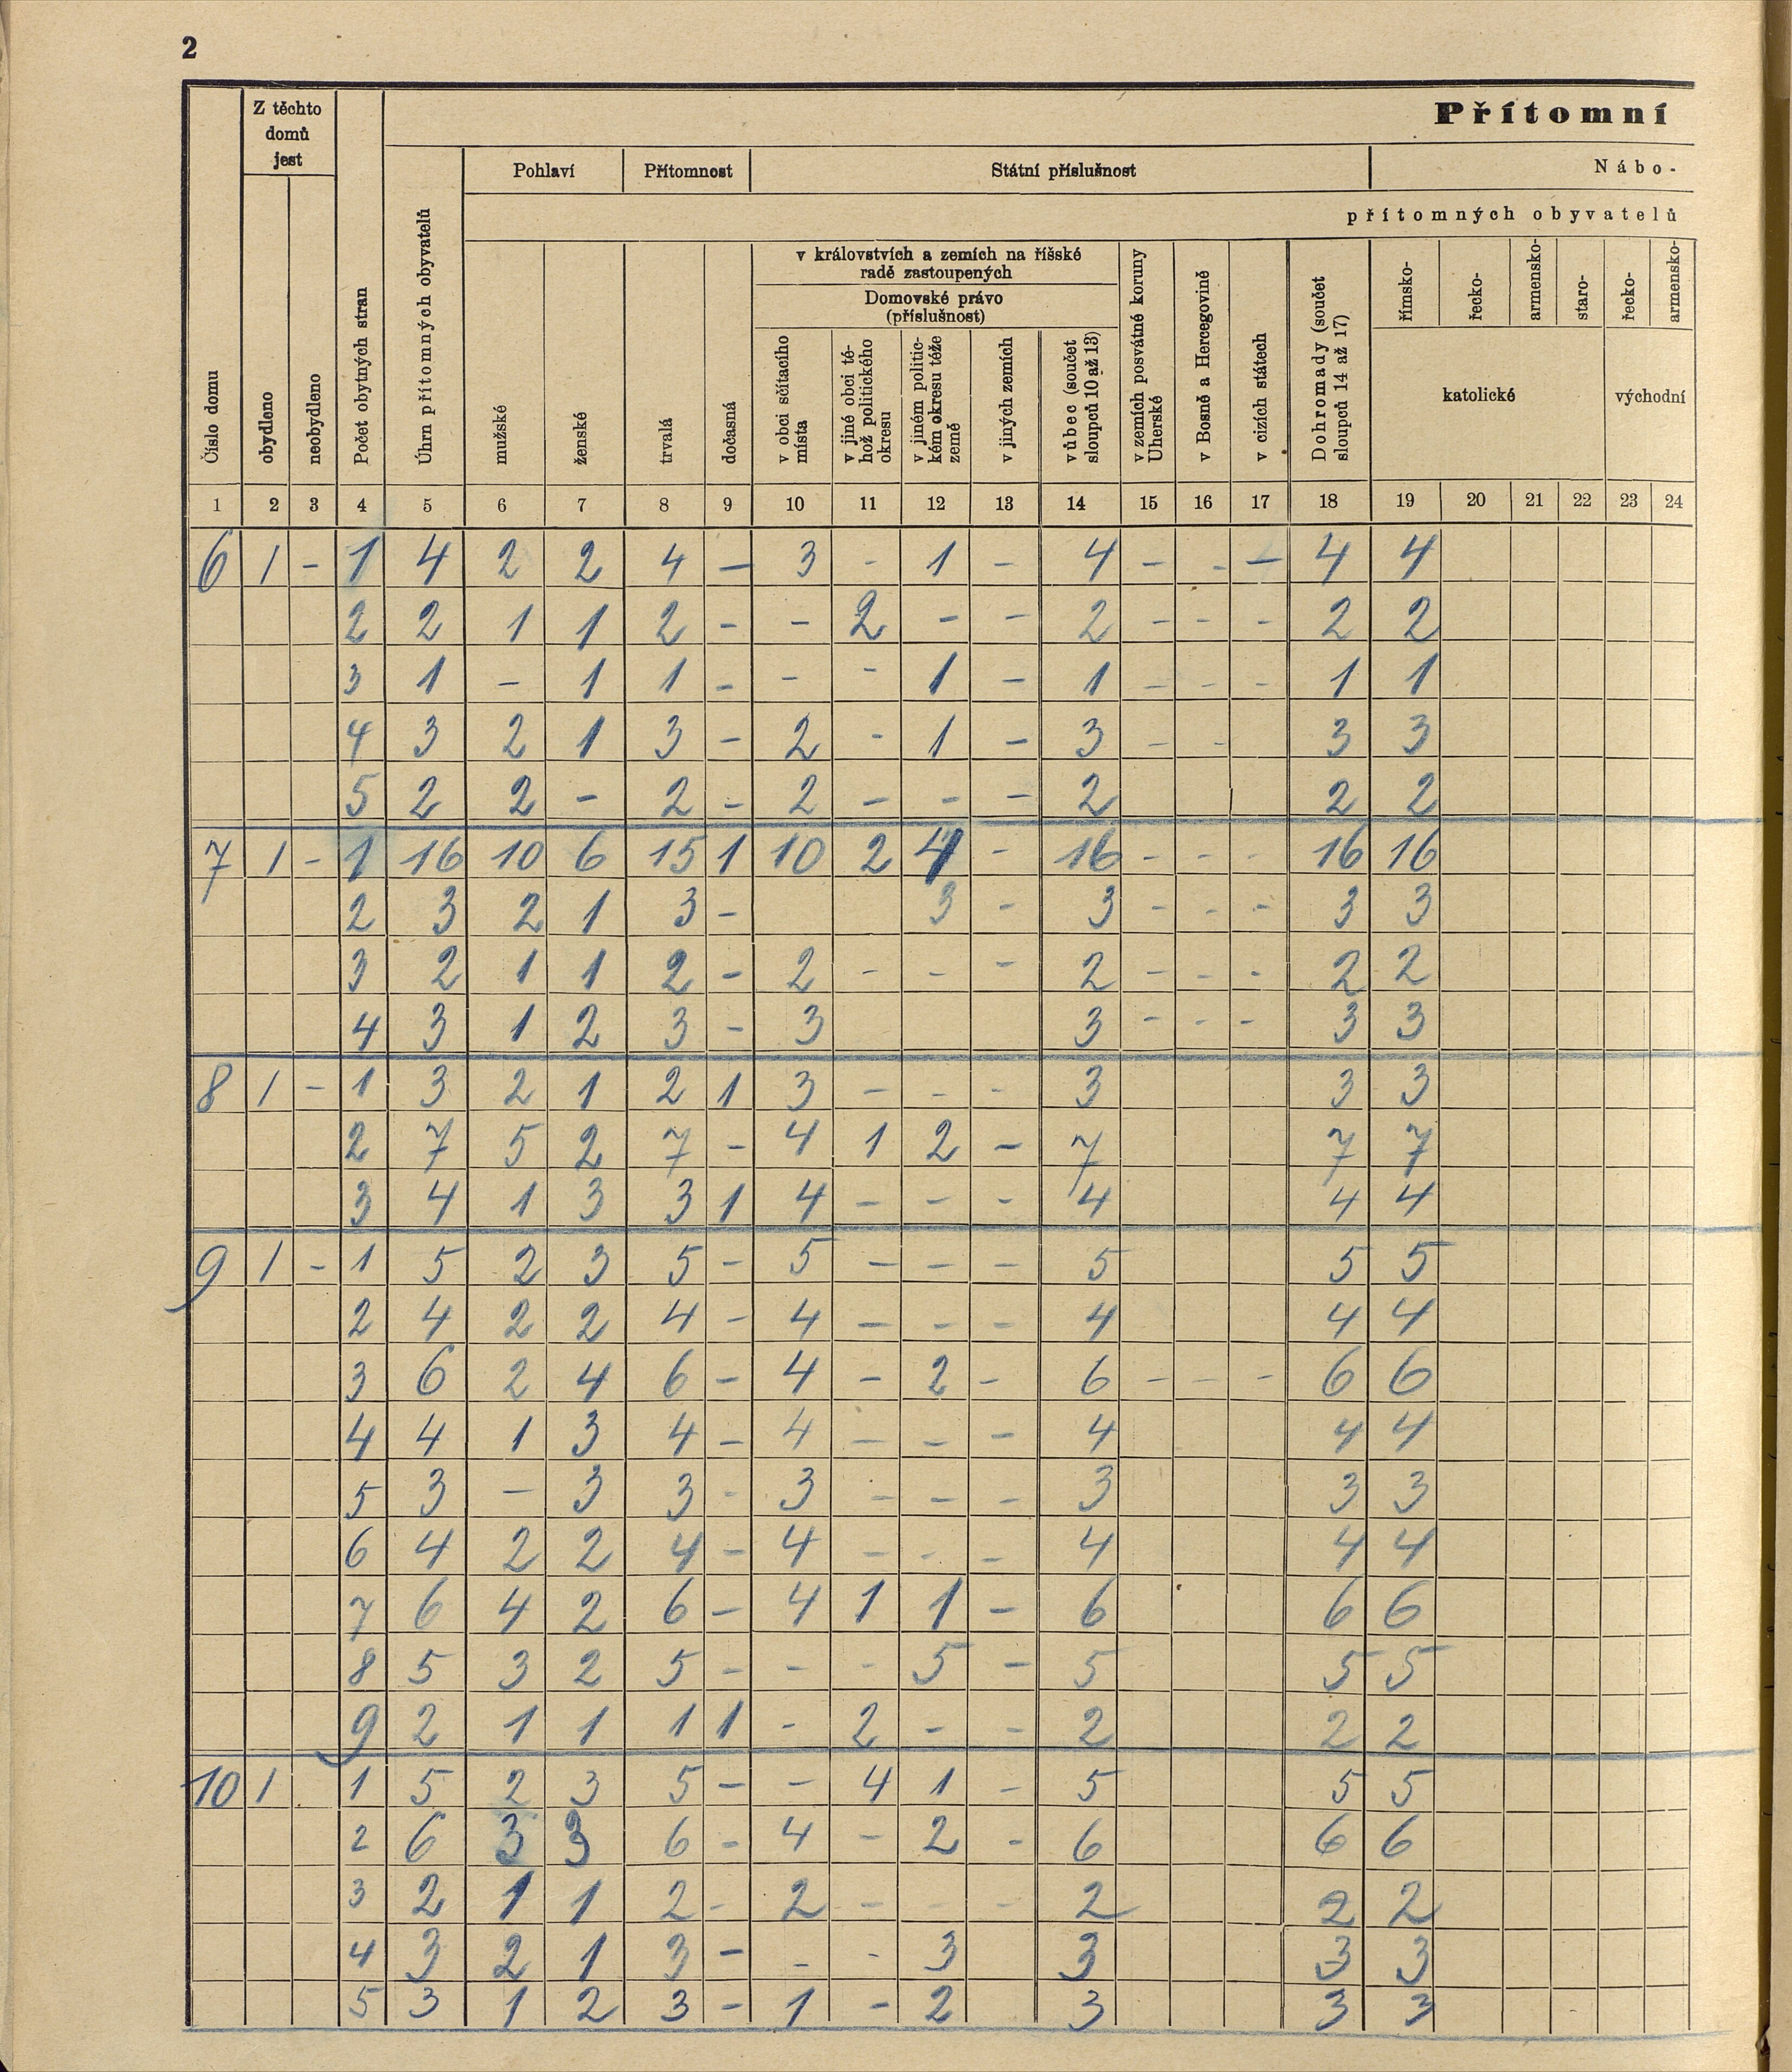 2
Přítomní
Z těchto domů jest
Pohlaví Přítomnost Státní příslušnost Nábo-
přítomných obyvatelů
v královstvích a zemích na říšské
radě zastoupených
Domovské právo
(příslušnost)
Číslo domu
obydleno
neobydleno
Počet obytných stran
Úhrn přítomných obyvatelů
mužské
ženské
trvalá
dočasná
v obci sčítacího místa
v jiné obci téhož politického okresu
v jiném politickém okresu téže země
v jiných zemích
vůbec (součet sloupců 10 až 13)
v zemích posvátné koruny Uherské
v Bosně a Hercegovině
v cizích státech
Dohromady (součet sloupců 14 až 17)
římsko-
řecko-
armensko-
staro-
řecko-
armensko-
katolické východní
1 2 3 4 5 6 7 8 9 10 11 12 13 14 15 16 17 18 19 20 21 22 23 24
6 1 - 1 4 2 2 4 - 3 - 1 - 4 - - - 4 4
2 2 1 1 2 - - 2 - - 2 - - - 2 2
3 1 - 1 1 - - - 1 - 1 - - - 1 1
4 3 2 1 3 - 2 - 1 - 3 - - 3 3
5 2 2 - 2 - 2 - - - 2 2 2
7 1 - 1 16 10 6 15 1 10 2 4 - 16 - - - 16 16
2 3 2 1 3 - 3 - 3 - - - 3 3
3 2 1 1 2 - 2 - - - 2 - - - 2 2
4 3 1 2 3 - 3 3 - - - 3 3
8 1 - 1 3 2 1 2 1 3 - - - 3 3 3
2 7 5 2 7 - 4 1 2 - 7 7 7
3 4 1 3 3 1 4 - - - 4 4 4
9 1 - 1 5 2 3 5 - 5 - - - 5 5 5
2 4 2 2 4 - 4 - - - 4 4 4
3 6 2 4 6 - 4 - 2 - 6 - - - 6 6
4 4 1 3 4 - 4 - - - 4 4 4
5 3 - 3 3 - 3 - - - 3 3 3
6 4 2 2 4 - 4 - - - 4 4 4
7 6 4 2 6 - 4 1 1 - 6 6 6
8 5 3 2 5 - - - 5 - 5 5 5
9 2 1 1 1 1 - 2 - - 2 2 2
10 1 1 5 2 3 5 - - 4 1 - 5 5 5
2 6 3 3 6 - 4 - 2 - 6 6 6
3 2 1 1 2 - 2 - - - 2 2 2
4 3 2 1 3 - - - 3 3 3 3
5 3 1 2 3 - 1 - 2 3 3 3